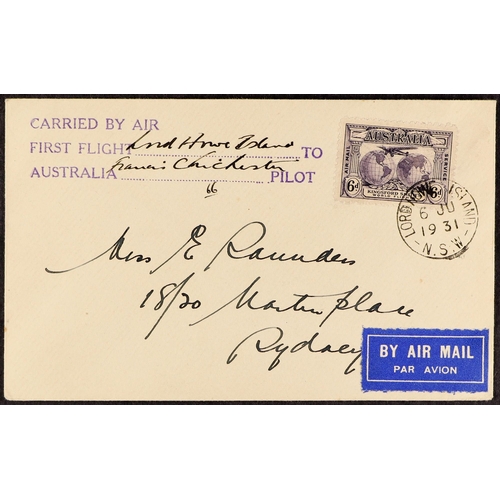 CARRIED BY AIR
FIRST FLIGHT Lord Howe Island TO
AUSTRALIA Francis Chichester PILOT
66
AUSTRALIA
AIR MAIL
SERVICE
6d
KINGSFORD SMITH'S
WORLD FLIGHTS
6d
LORD HOWE ISLAND
6 JU
1931
N.S.W
Miss E Saunders
18/20 Martin place
Sydney
BY AIR MAIL
PAR AVION